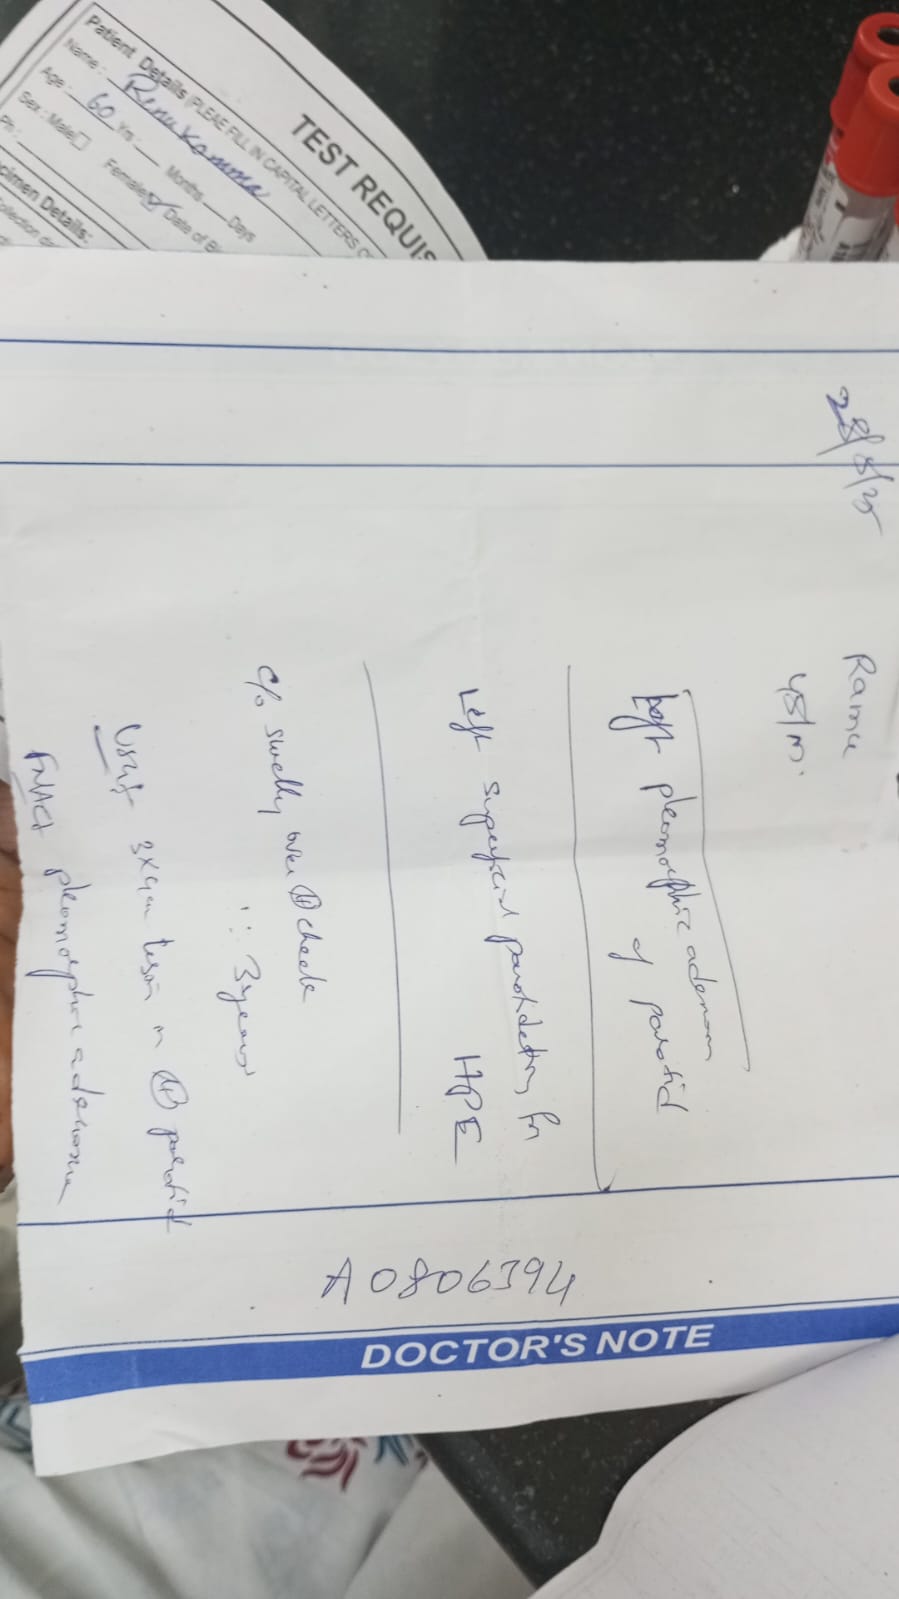 TEST REQUIS
Patient Details (PLEAE FILL IN CAPITAL LETTERS O
Name: Renukamma
Age: 60 Yrs Months Days
Sex: Male Female Date of B
Ph:
cimen Details:
28/8/25
Ramu
45/m.
Left pleomorphic adenoma
of parotid
Left superficial parotidectomy for
HPE
C/o swelly over (L) cheek
: 3years
USG 3x4cm lesion in (L) parotid
FNAC pleomorphic adenoma
A0806394
DOCTOR'S NOTE